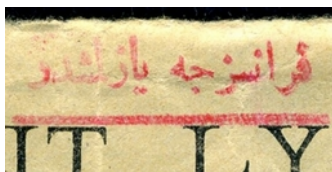 فرانسزجه یازلمشدر
IT LY